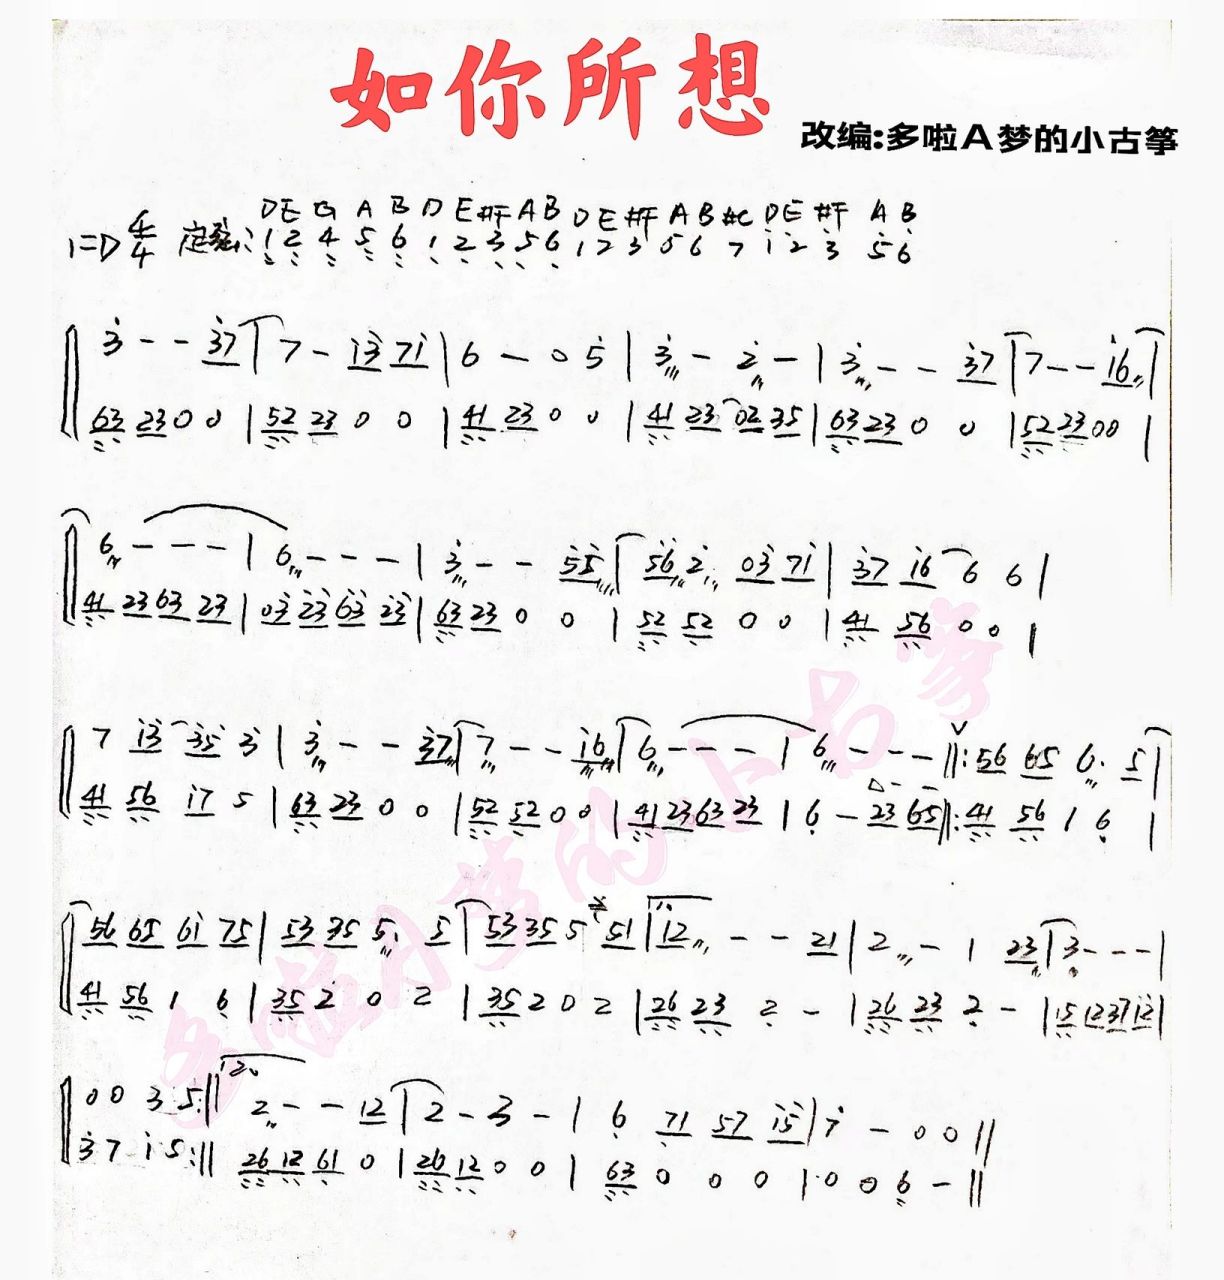 如你所想
改编:多啦A梦的小古筝
DE G A B D E #F A B D E #F A B #C D E #F A B
1=D 4/4 定弦: 1 2 4 5 6 1 2 3 5 6 1 2 3 5 6 7 1 2 3 5 6
3 - - 37 | 7 - 13 71 | 6 - 0 5 | 3 - 2 - | 3 - - 37 | 7 - - 16 |
63 23 0 0 | 52 23 0 0 | 41 23 0 0 | 41 23 02 35 | 63 23 0 0 | 52 23 0 0 |
6 - - - | 6 - - - | 3 - - 55 | 56 2 03 71 | 37 16 6 6 |
41 23 63 23 | 03 23 63 23 | 63 23 0 0 | 52 52 0 0 | 41 56 0 0 |
7 13 35 3 | 3 - - 37 | 7 - - 16 | 6 - - - | 6 - - - ‖: 56 65 6· 5 |
41 56 17 5 | 63 23 0 0 | 52 52 0 0 | 41 23 63 23 | 6 - 23 65 ‖: 41 56 1 6 |
56 65 61 75 | 53 35 5· 5 | 53 35 5 51 | 12 - - 21 | 2 - 1 23 | 3 - - - |
41 56 1 6 | 35 2 0 2 | 35 2 0 2 | 26 23 2 - | 26 23 2 - | 15 12 37 12 |
0 0 3 5 :‖ 2 - - 12 | 2 - 3 - | 6 71 57 15 | 7 - 0 0 ‖
3 7 1 5 :‖ 26 12 61 0 | 26 12 0 0 | 63 0 0 0 | 0 0 6 - ‖
多啦A梦的小古筝